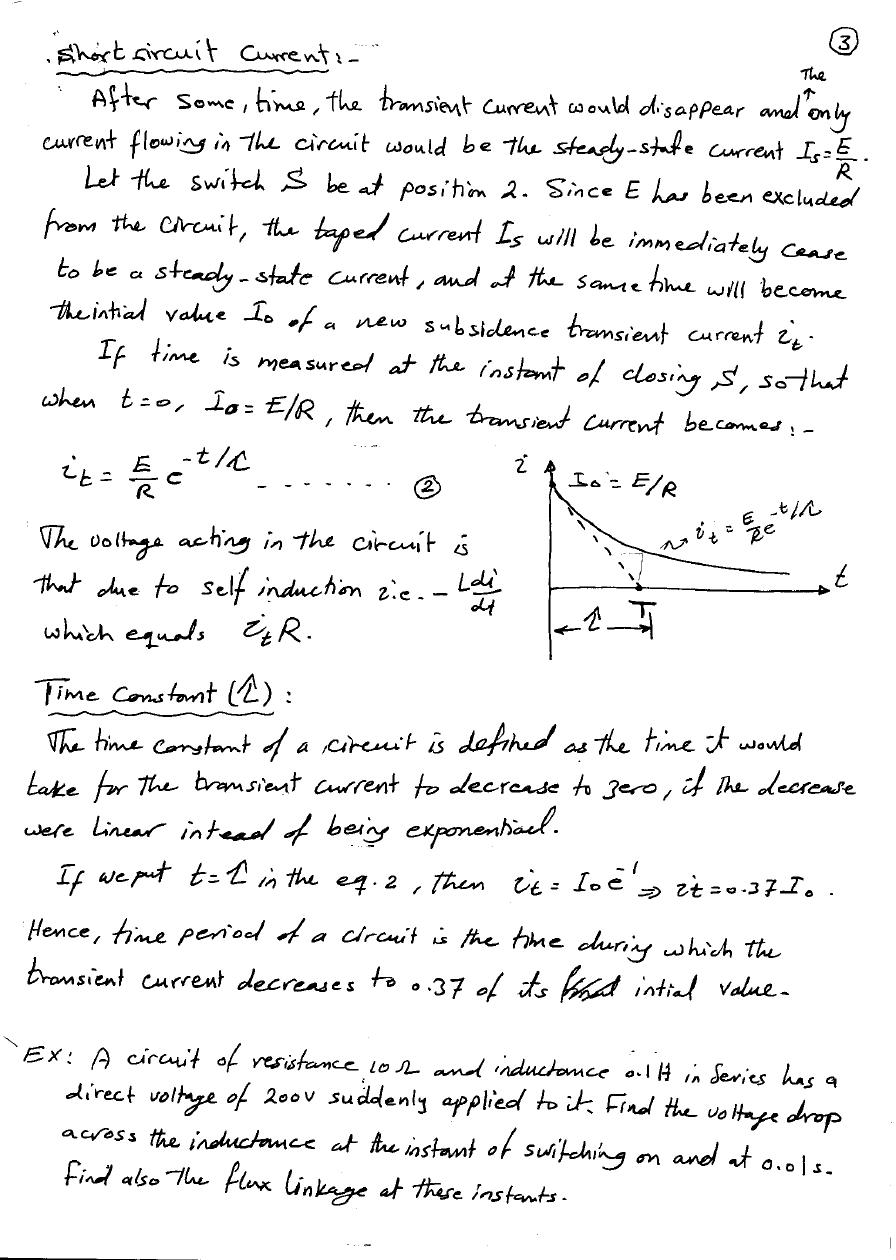 ③
Short circuit Current:-
The
After some, time, the transient current would disappear and only
current flowing in the circuit would be the steady-state current Is = E/R.
Let the switch S be at position 2. Since E has been excluded
from the circuit, the taped current Is will be immediately cease
to be a steady-state current, and at the same time will become
the intial value Io of a new subsidence transient current it.
If time is measured at the instant of closing S, so that
when t=0, Io = E/R, then the transient current becomes:-
it = E/R e^-t/λ - - - - - - - ②
i
Io = E/R
it = E/R e^-t/λ
t
T
λ
The voltage acting in the circuit is
that due to self induction i.e. - Ldi/dt
which equals itR.
Time Constant (λ):
The time constant of a circuit is defined as the time it would
take for the transient current to decrease to zero, if the decrease
were linear intead of being exponentiael.
If we put t=λ in the eq. 2, then it = Io e^-1 ⇒ it = 0.37 Io.
Hence, time period of a circuit is the time during which the
transient current decreases to 0.37 of its intial value.
Ex: A circuit of resistance 10 Ω and inductance 0.1 H in series has a
direct voltage of 200V suddenly applied to it. Find the voltage drop
across the inductance at the instant of switching on and at 0.01s.
Find also the flux linkage at these instants.